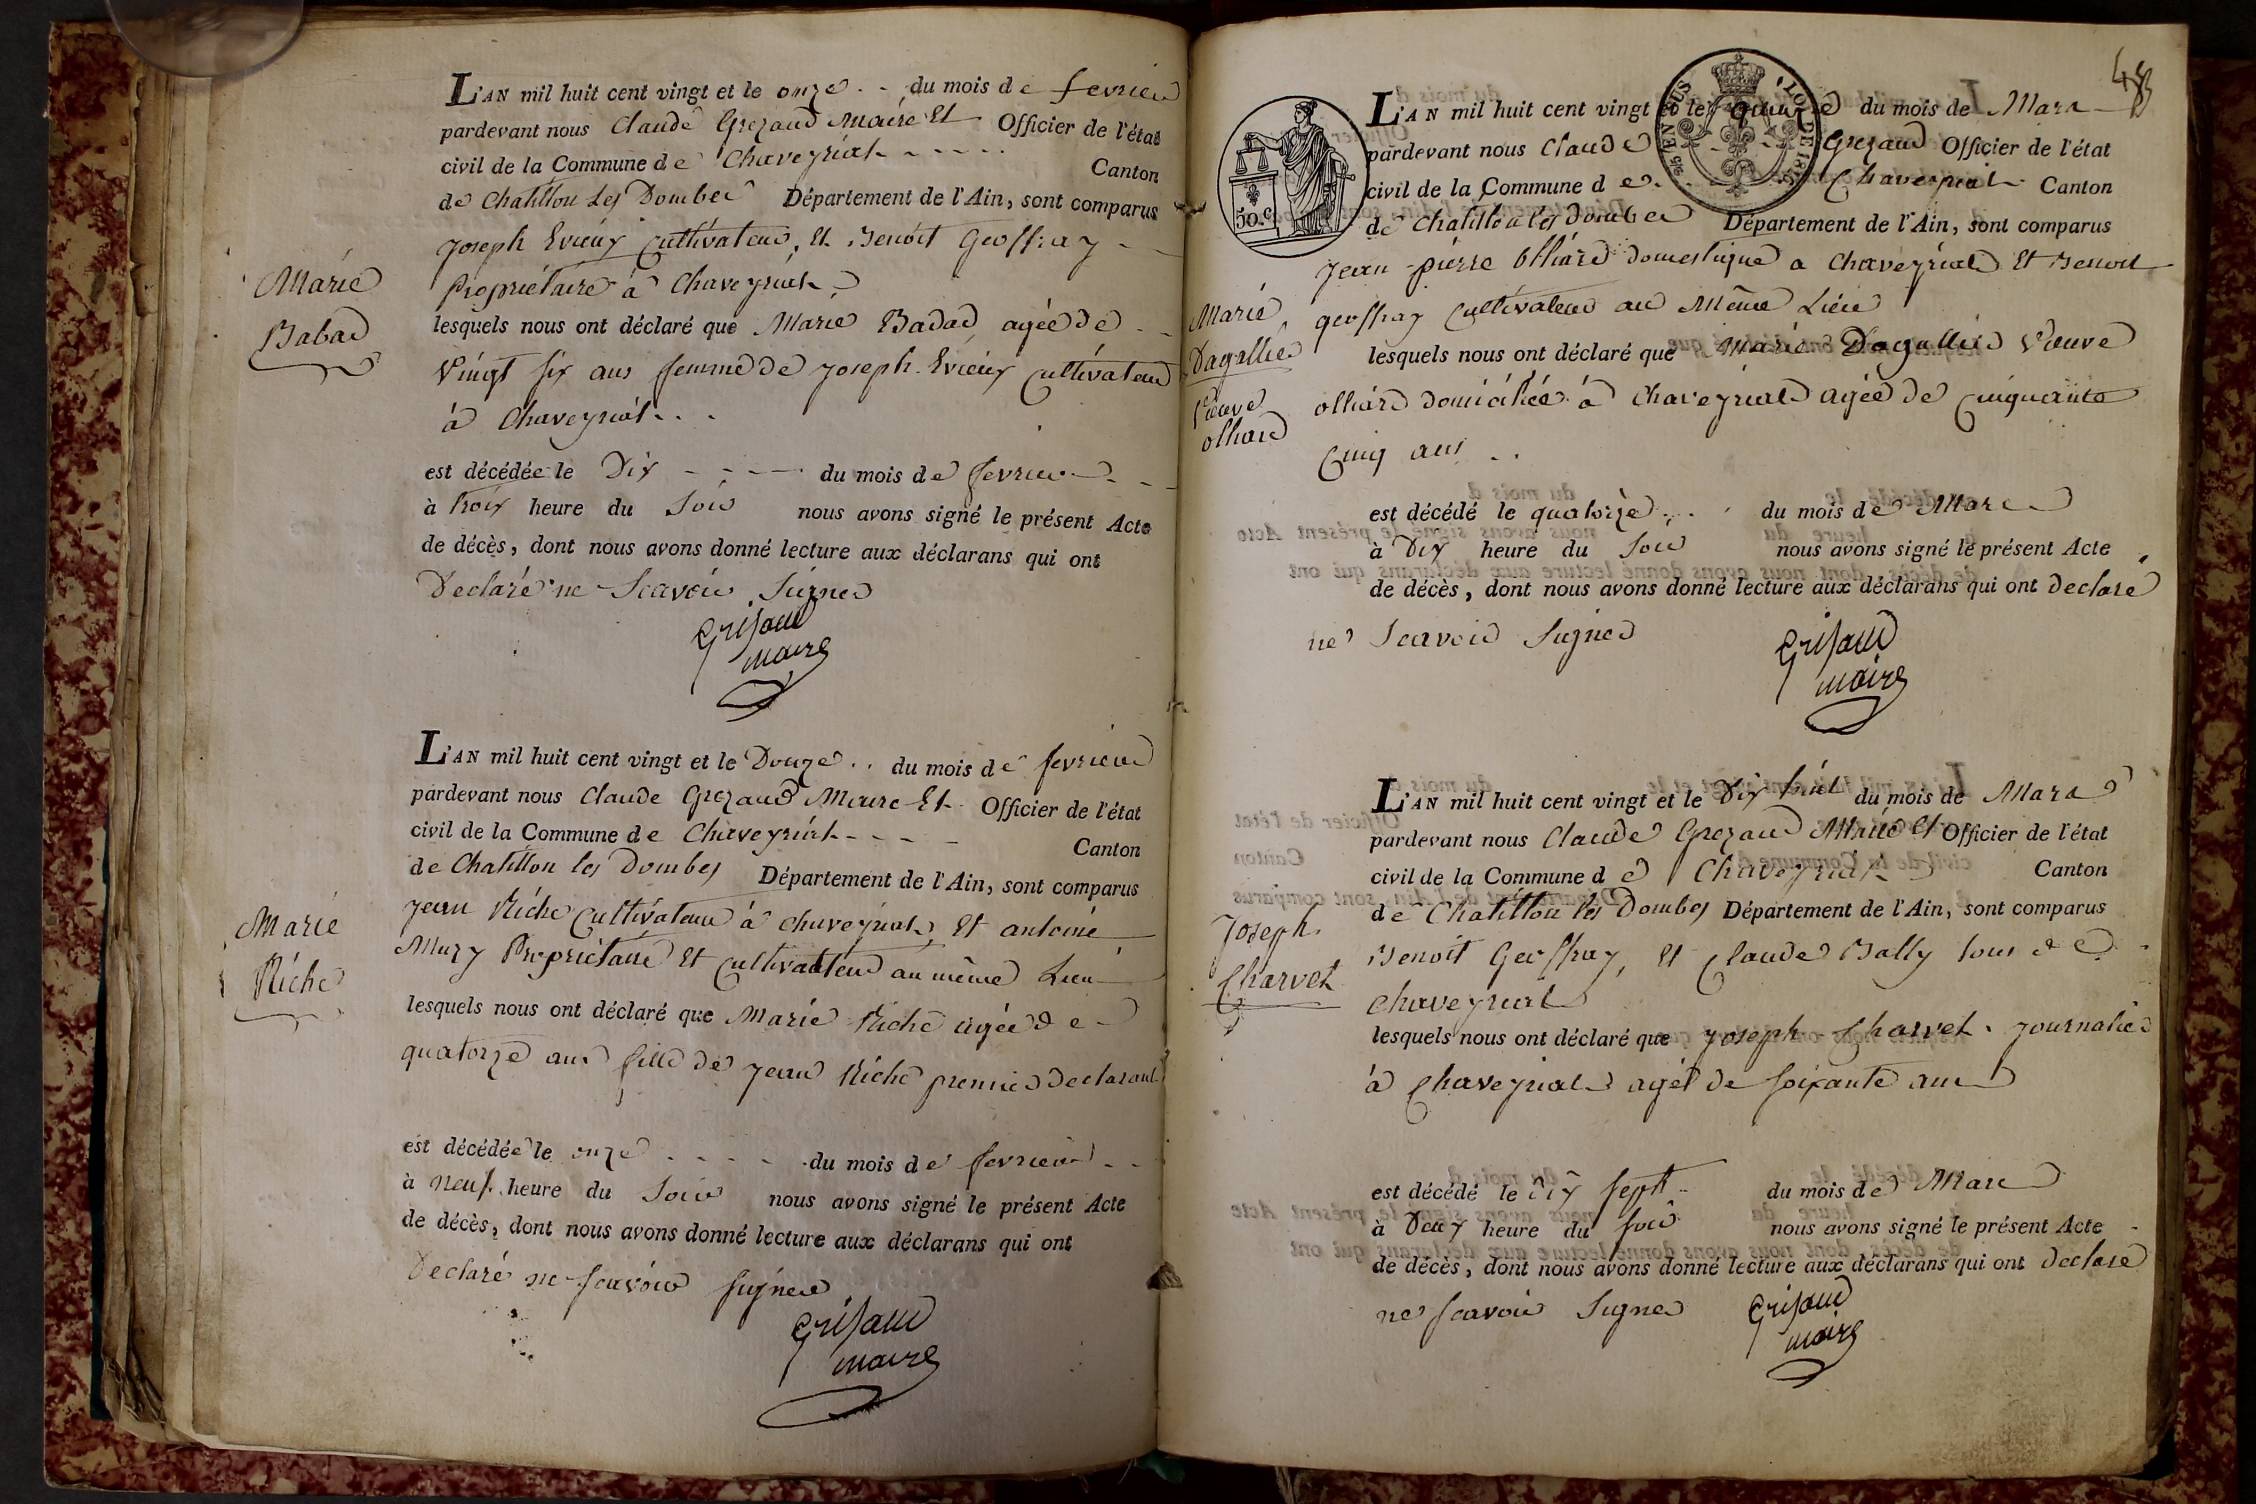 L'AN mil huit cent vingt et le onze . - du mois de fevrier
pardevant nous Claude Grezaud Maire Et Officier de l'état
civil de la Commune de Chaveyriat - - - - - Canton
de Chatillon Les Dombes Département de l'Ain, sont comparus
Joseph Evieux Cultivateur, Et Benoit Geoffray - -
Propriétaire à Chaveyriat
Marie
Babad
lesquels nous ont déclaré que Marie Badad agée de - -
Vingt six ans femme de Joseph Evieux Cultivateur
à Chaveyriat . .
est décédée le Dix - - - - du mois de fevrier - -
à trois heure du Soir nous avons signé le présent Acte
de décès, dont nous avons donné lecture aux déclarans qui ont
Declaré ne Scavoir Signer
Grisaud
maire
L'AN mil huit cent vingt et le Douze . . du mois de fevrier
pardevant nous Claude Grezaud Maire Et Officier de l'état
civil de la Commune de Chaveyriat - - - - Canton
de Chatillon les Dombes Département de l'Ain, sont comparus
Jean Riche Cultivateur à Chaveyriat, Et antoine
Mury Propriétaire Et Cultivateur au même Lieu
Marie
Riche
lesquels nous ont déclaré que Marie Riche agée de -
quatorze ans fille de Jean Riche premier Declarant
est décédée le onze - - - - du mois de fevrier - -
à neuf heure du Soir nous avons signé le présent Acte
de décès, dont nous avons donné lecture aux déclarans qui ont
Declaré ne Scavoir Signer
Grisaud
maire
48
EN SUS
LOI DE
50.c
L'AN mil huit cent vingt et le quinze du mois de Mars
pardevant nous Claude - - Grezaud Officier de l'état
civil de la Commune de . Chaveyriat Canton
de Chatillon les Dombes Département de l'Ain, sont comparus
Jean-pierre Olliard domestique a Chaveyriat Et Benoit
Geoffray Cultivateur au Même Lieu
Marie
Dagallier
Veuve
olliard
lesquels nous ont déclaré que Marie Dagallier Veuve
olliard domiciliée à Chaveyriat agée de Cinquante
Cinq ans . .
est décédé le quatorze . . du mois de Mars
à Dix heure du Soir nous avons signé le présent Acte
de décès, dont nous avons donné lecture aux déclarans qui ont declaré
ne Scavoir Signer
Grisaud
maire
L'AN mil huit cent vingt et le Dix huit du mois de Mars
pardevant nous Claude Grezaud Maire Et Officier de l'état
civil de la Commune de Chaveyriat Canton
de Chatillon les Dombes Département de l'Ain, sont comparus
Benoit Geoffray, Et Claude Bally tous de -
Chaveyriat
Joseph
Charvet
lesquels nous ont déclaré que Joseph Charvet Journalier
à Chaveyriat agé de soixante ans
est décédé le dix sept du mois de Mars
à Deux heure du Soir nous avons signé le présent Acte
de décès, dont nous avons donné lecture aux déclarans qui ont declaré
ne Scavoir Signer
Grisaud
maire